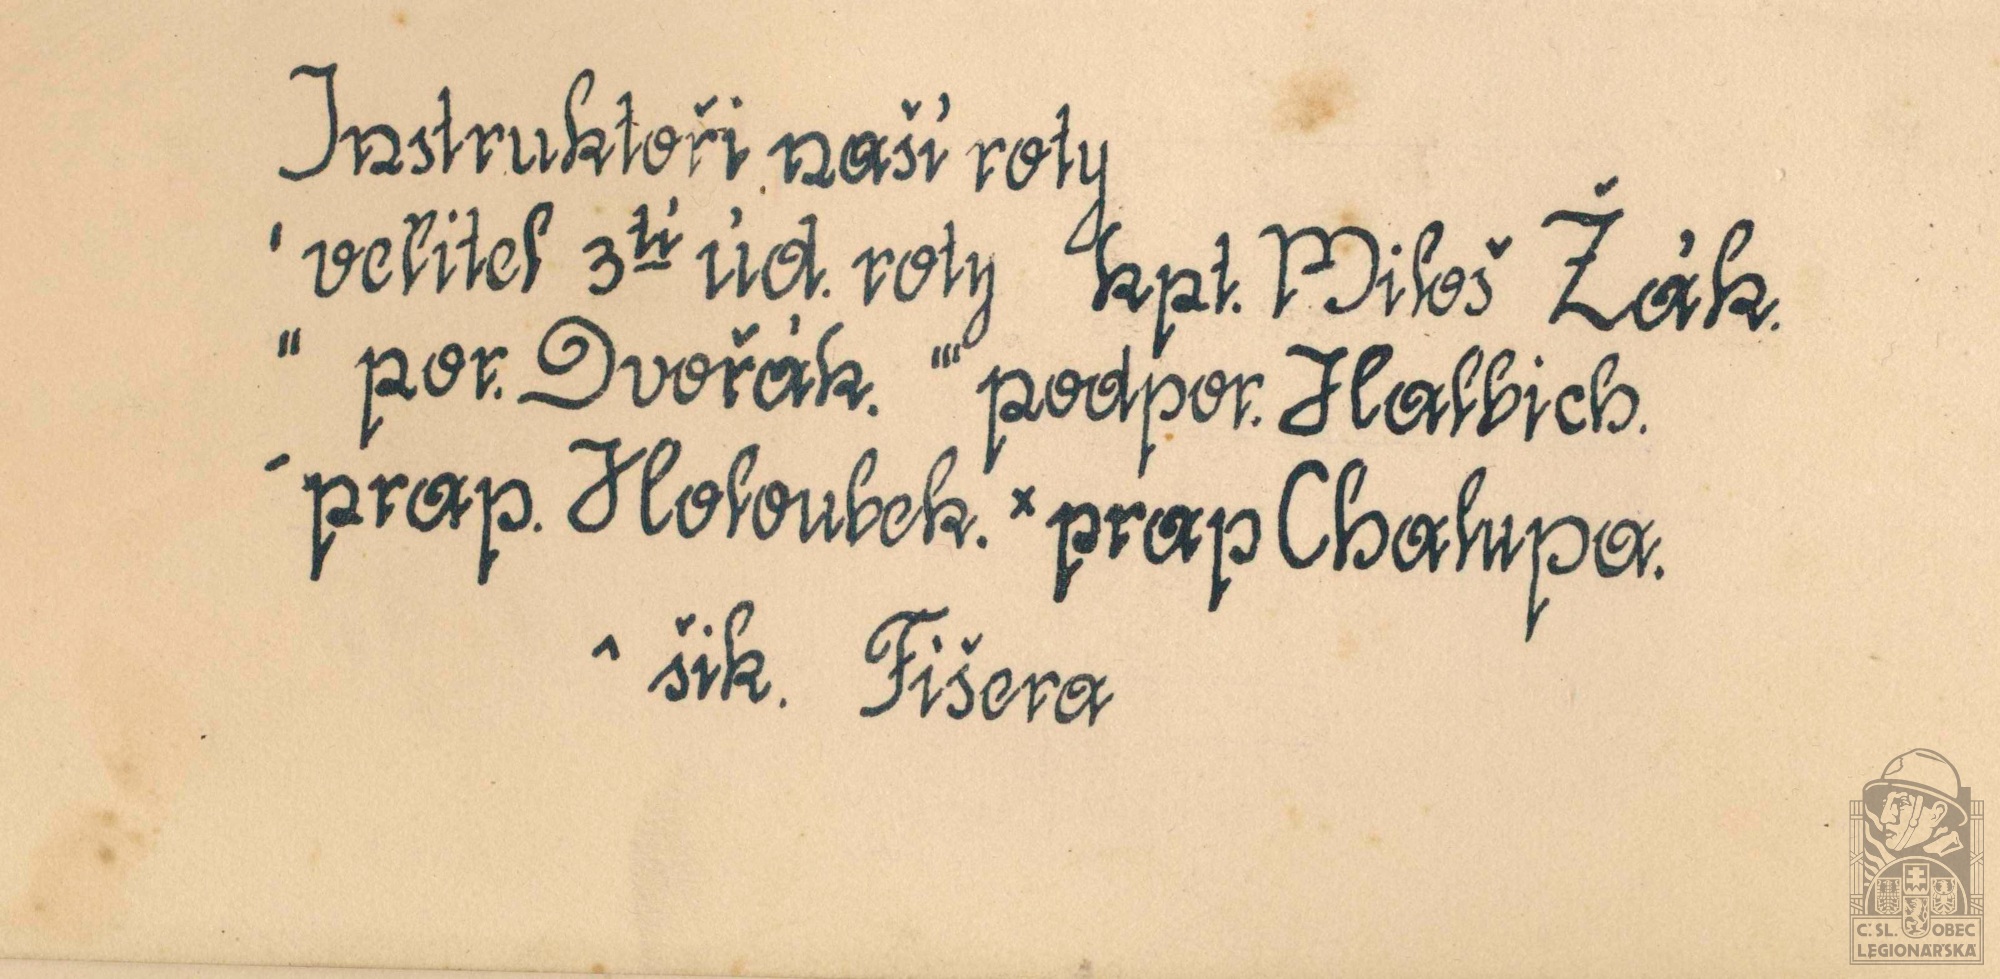 Instruktoři naší roty
' velitel 3tí úd. roty kpt. Miloš Žák.
" por. Dvořák. "" podpor. Halbich.
- prap. Holoubek. x prap Chalupa.
^ šik. Fišera
Č. SL. OBEC
LEGIONÁŘSKÁ